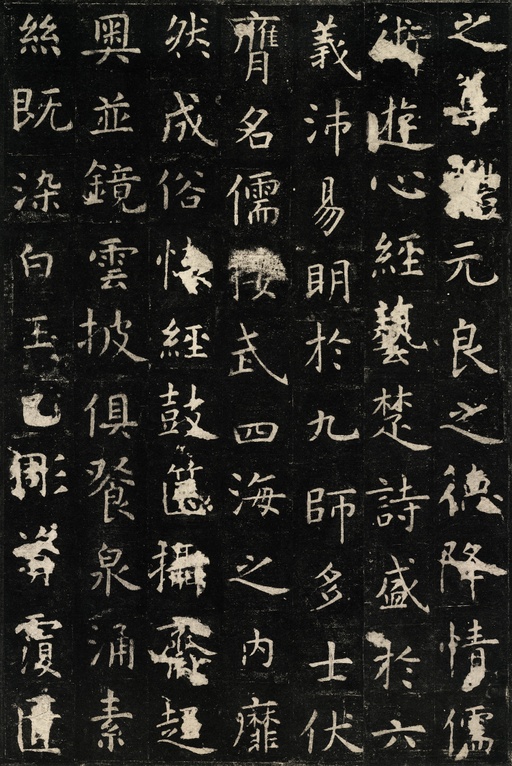 之尊禮元良之德降情儒
術遊心經藝楚詩盛於六
義沛易明於九師多士伏
膺名儒接武四海之內靡
然成俗懷經鼓篋攝齋趨
奧並鏡雲披俱餐泉涌素
絲既染白玉已彫資覆匱